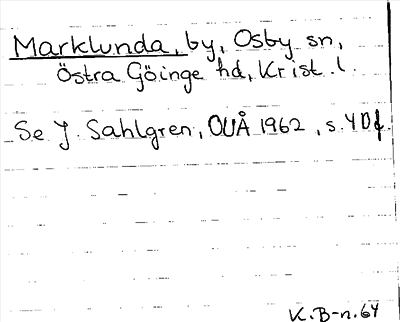 Marklunda, by, Osby sn,
Östra Göinge hd, Krist. l.
Se J. Sahlgren, OUÅ 1962, s. 40f.
K. B-n. 64